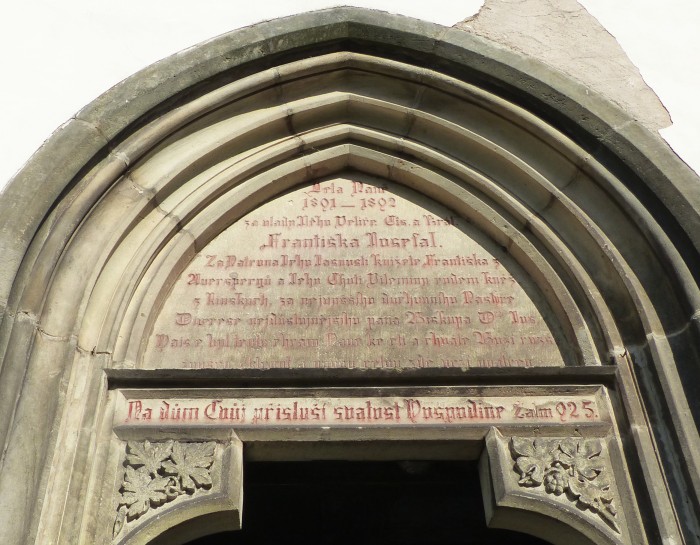 Leta Páně
1891 – 1892
za vlády Jeho Velič. Cís. a Král.
Františka Josefa I.
Za Patrona Jeho Jasnosti Knížete Františka z
Auerspergů a Jeho Choti Vilemíny rodem kněž.
z Kinských, za nejvyššího duchovního Pastýře
Diecese nejdůstojnějšího pana Biskupa
byl tento chrám Páně ke cti a chvále Boží
Na dům Tvůj přísluší svatost Hospodine Žalm 92 5.